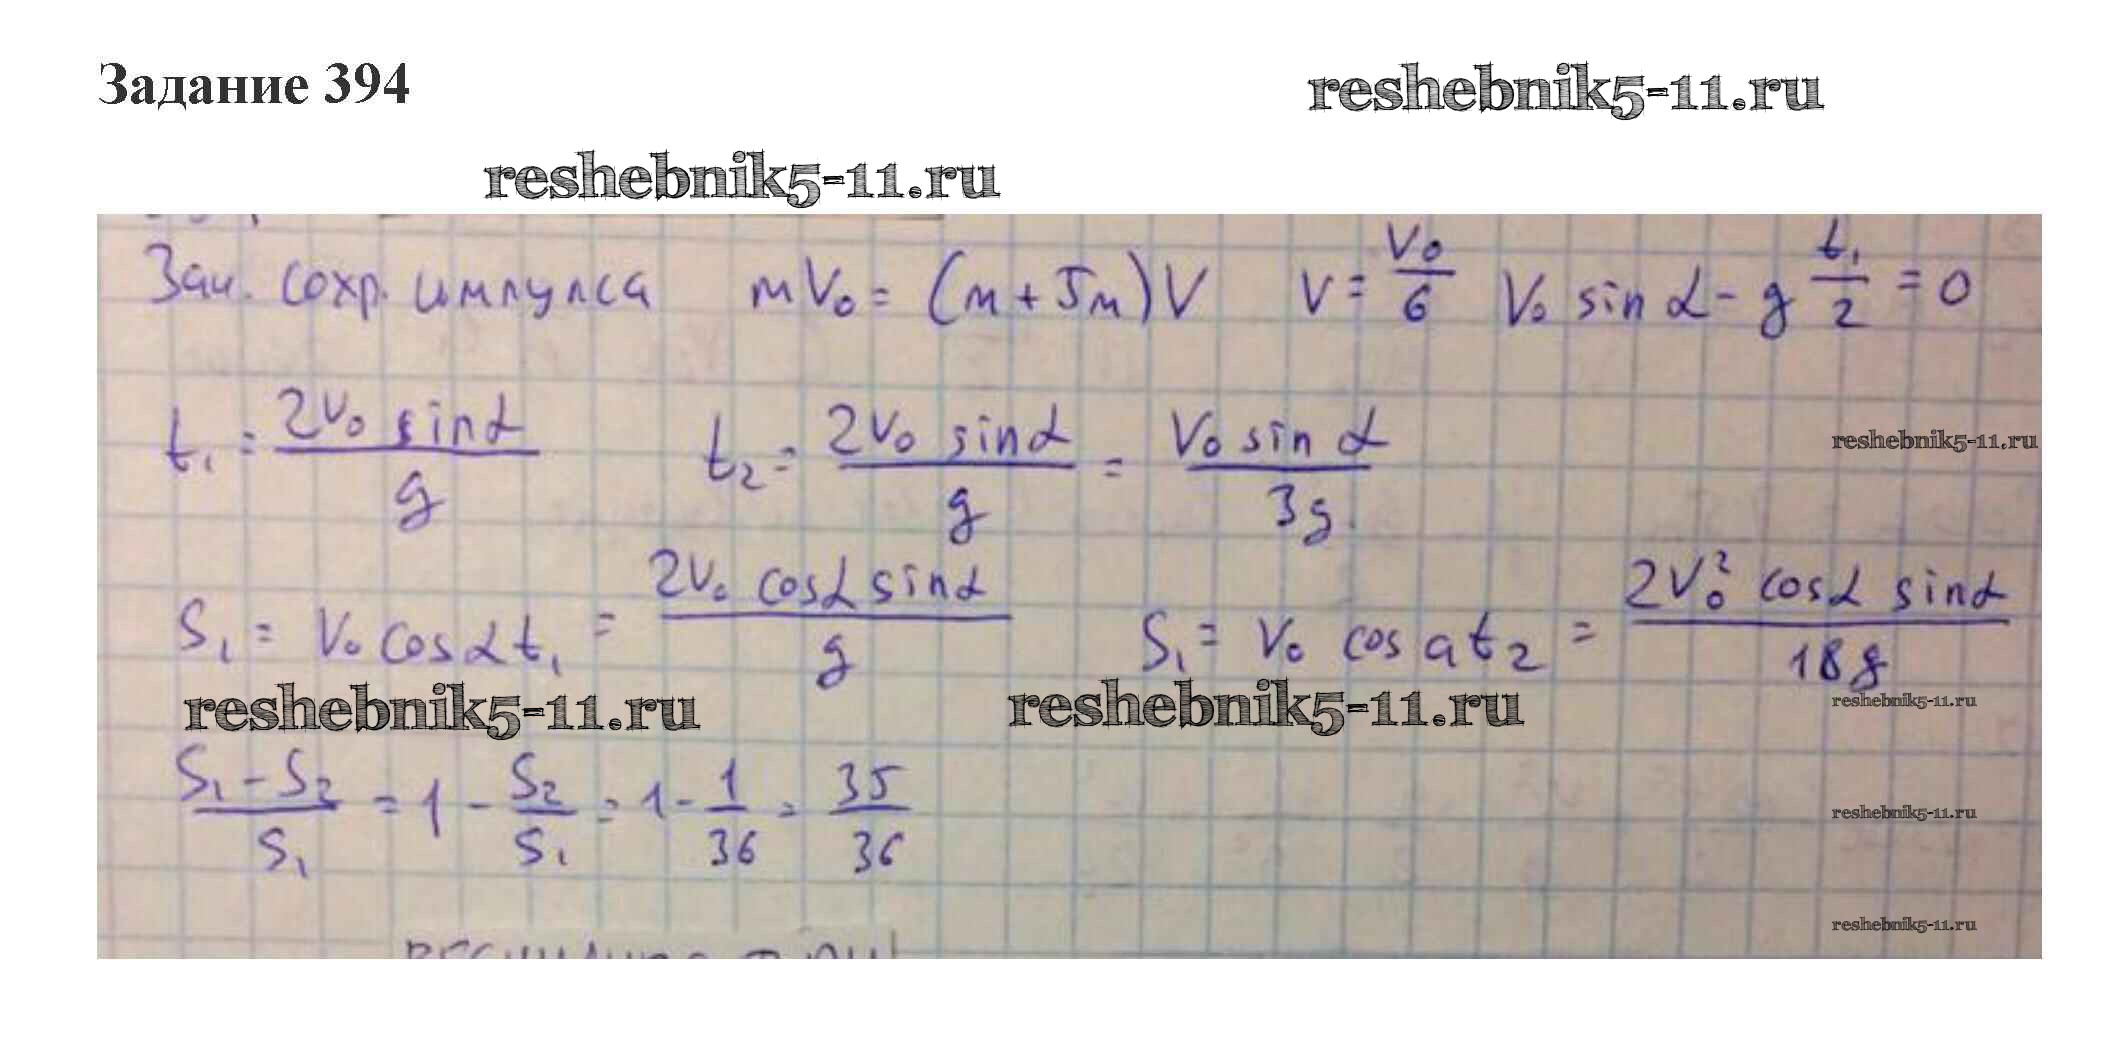 Задание 394
reshebnik5-11.ru
reshebnik5-11.ru
Зак. сохр. импулса mV₀ = (m + 5m)V V = V₀/6 V₀ sin α - g t₁/2 = 0
t₁ = 2V₀ sin α / g t₂ = 2V₀ sin α / g = V₀ sin α / 3g
reshebnik5-11.ru
S₁ = V₀ cos α t₁ = 2V₀ cos α sin α / g S₁ = V₀ cos a t₂ = 2V₀² cos α sin α / 18g
reshebnik5-11.ru
reshebnik5-11.ru
reshebnik5-11.ru
S₁ - S₂ / S₁ = 1 - S₂/S₁ = 1 - 1/36 = 35/36
reshebnik5-11.ru
reshebnik5-11.ru